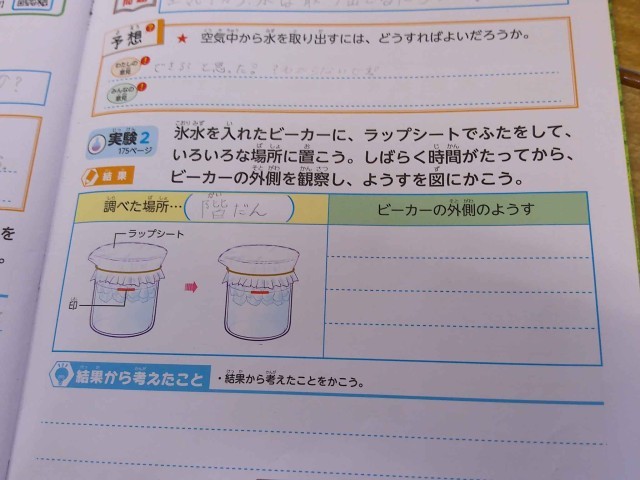 予想
★ 空気中から水を取り出すには、どうすればよいだろうか。
わたしの意見
みんなの意見
実験2
175ページ
氷水を入れたビーカーに、ラップシートでふたをして、
いろいろな場所に置こう。しばらく時間がたってから、
ビーカーの外側を観察し、ようすを図にかこう。
結果
調べた場所…(階だん)
ビーカーの外側のようす
ラップシート
印
結果から考えたこと
・結果から考えたことをかこう。